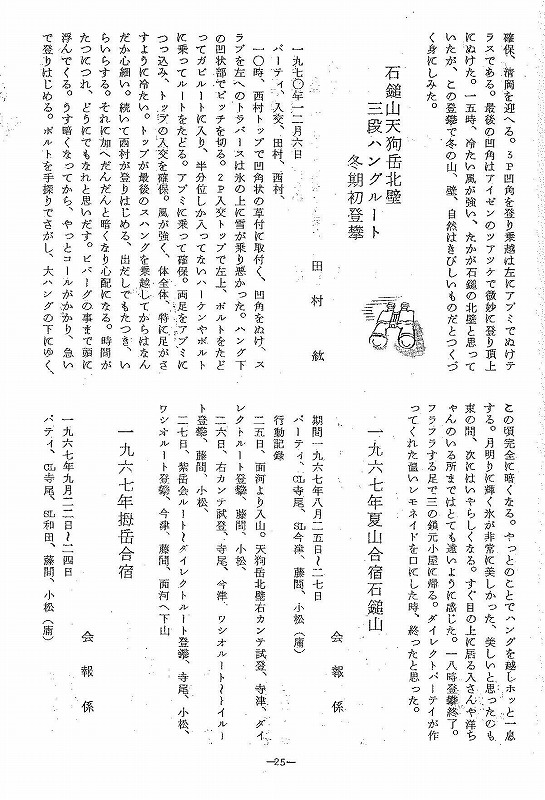 確保、清岡を迎へる。3P凹角を登り乗越は左にアブミでぬけテ
ラスである。最後の凹角はアイゼンのツアッケで微妙に登り頂上
にぬけた。一五時、冷たい風が強い、たかが石鎚の北壁と思って
いたが、この登攀で冬の山、壁、自然はきびしいものだとつくづ
く身にしみた。
石鎚山天狗岳北壁
三段ハングルート
冬期初登攀
田村 紘
一九七〇年一二月六日
パーティ、入交、田村、西村、
一〇時、西村トップで凹角状の草付に取付く、凹角をぬけ、ス
ラブを左へのトラバースは氷の上に雪が乗り悪かった。ハング下
の凹状部でピッチを切る。2P入交トップで左上、ボルトをたど
ってガビルートに入り、半分位しか入ってないハーケンやボルト
に乗ってルートをたどる。アブミに乗って確保。両足をアブミに
つっ込み、トップの入交を確保。風が強く、体全体、特に足がさ
すように冷たい。トップが最後のスハングを乗越してからはなん
だか心細い。続いて西村が登りはじめる、出だしでもたつき、い
らいらする。それに加へだんだんと暗くなり心配になる。時間が
たつにつれ、どうにでもなれと思いだす。ビバーグの事まで頭に
浮んでくる。うす暗くなってから、やっとコールがかかり、急い
で登りはじめる。ボルトを手探りでさがし、大ハングの下にゆく、
この頃完全に暗くなる。やっとのことでハングを越しホッと一息
する。月明りに輝く氷が非常に美しかった、美しいと思ったのも
束の間、次にはいやらしくなる。すぐ目の上に居る入さんや洋ち
ゃんのいる所まではとても遠いように感じた。一八時登攀終了。
フラフラする足で三の鎖元小屋に帰る。ダイレクトパーティが作
ってくれた温いレモネイドを口にした時、終ったと思った。
一九六七年夏山合宿石鎚山
会報係
期間一九六七年八月二五日〜二七日
パーティ、CL寺尾、SL今津、藤間、小松(庸)
行動記録
二五日、面河より入山。天狗岳北壁右カンテ試登、寺津、ダイ
レクトルート登攀、藤間、小松、
二六日、右カンテ試登、寺尾、今津 ワシオルート〜トイルー
ト登攀、藤間、小松、
二七日、紫岳会ルート〜ダイレクトルート登攀、寺尾、小松、
ワシオルート登攀、今津、藤間、面河へ下山
一九六七年拇岳合宿
会報係
一九六七年九月二二日〜二四日
パティ、CL寺尾、SL和田、藤間、小松(庸)
—25—